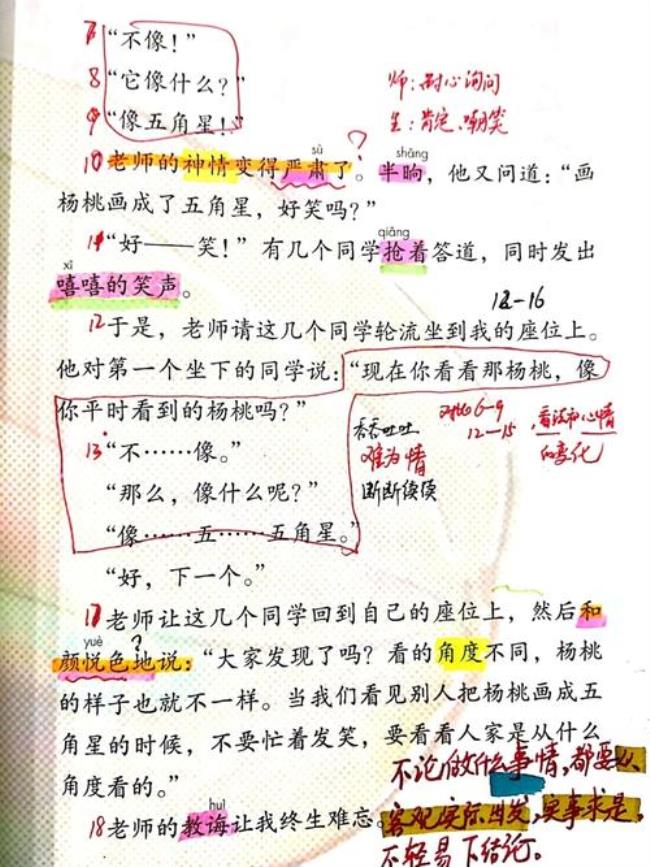 7 “不像！”
8 “它像什么？”
师：耐心询问
9 “像五角星！”
生：肯定、嘲笑
sù
?
shāng
10 老师的神情变得严肃了。半晌，他又问道：“画
杨桃画成了五角星，好笑吗？”
qiāng
11 “好——笑！”有几个同学抢着答道，同时发出
xī
嘻嘻的笑声。
12-16
12 于是，老师请这几个同学轮流坐到我的座位上。
他对第一个坐下的同学说：“现在你看看那杨桃，像
你平时看到的杨桃吗？”
吞吞吐吐
对比6-9
12-15
，看法和心情
的变化
13 “不……像。”
难为情
“那么，像什么呢？”
断断续续
“像……五……五角星。”
“好，下一个。”
17 老师让这几个同学回到自己的座位上，然后和
yuè
?
颜悦色地说：“大家发现了吗？看的角度不同，杨桃
的样子也就不一样。当我们看见别人把杨桃画成五
角星的时候，不要忙着发笑，要看看人家是从什么
角度看的。”
不论做什么事情，都要从
huì
18 老师的教诲让我终生难忘。
客观实际出发，实事求是，
不轻易下结论。